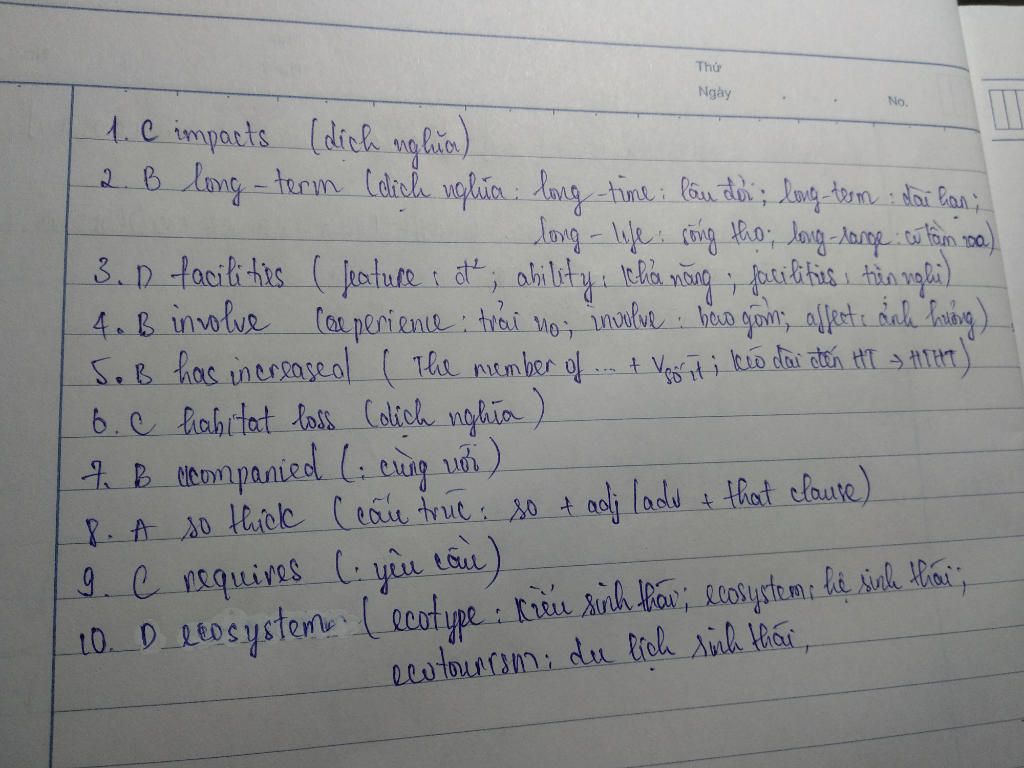 Thứ
Ngày . . No.
1. C impacts (dịch nghĩa)
2. B long-term (dịch nghĩa: long-time: lâu đời; long-term: dài hạn;
long-life: sống thọ; long-range: có tầm xa)
3. D facilities (feature: đ²; ability: khả năng; facilities: tiện nghi)
4. B involve (experience: trải no; involve: bao gồm; affect: ảnh hưởng)
5. B has increased (The number of ... + V số ít; kéo dài đến HT → HTHT)
6. C habitat loss (dịch nghĩa)
7. B acompanied (: cùng với)
8. A so thick (cấu trúc: so + adj/adv + that clause)
9. C requires (: yêu cầu)
10. D ecosystem (ecotype: kiểu sinh thái; ecosystem: hệ sinh thái;
ecotourism: du lịch sinh thái,